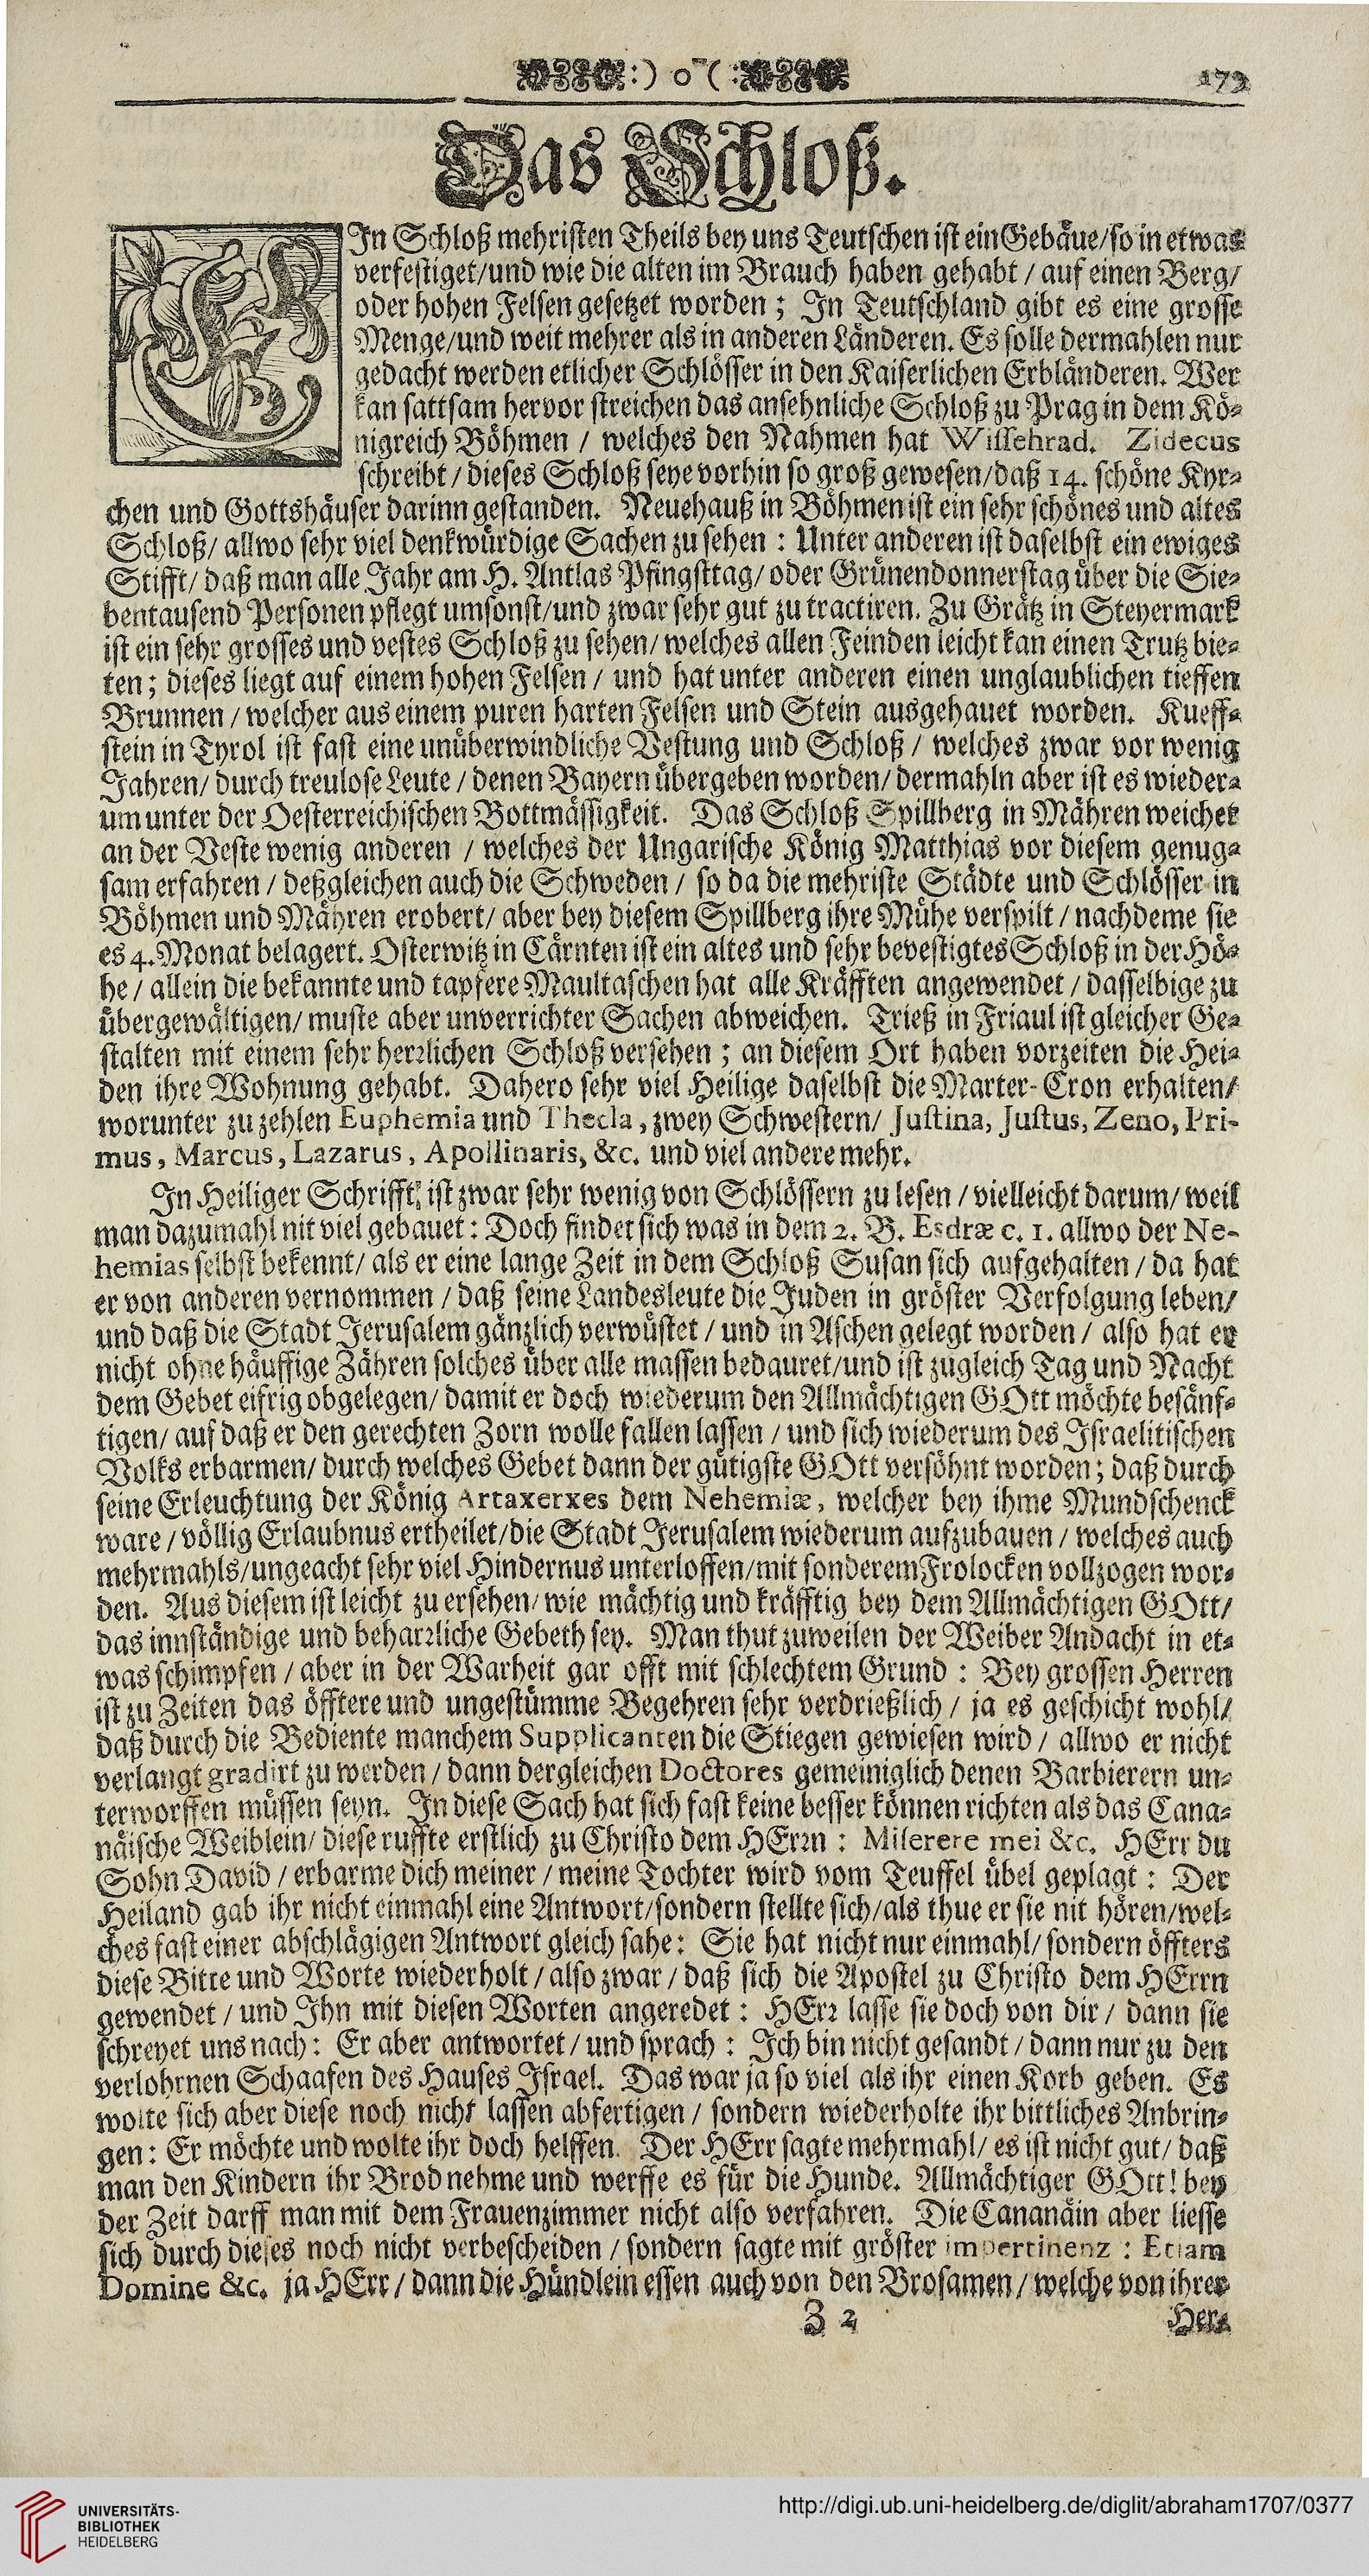 :) o (:
179
Das Schloß.
EIn Schloß mehristen Theils bey uns Teutschen ist ein Gebäue/ so in etwas
verfestiget/ und wie die alten im Brauch haben gehabt / auf einen Berg/
oder hohen Felsen gesetzet worden ; In Teutschland gibt es eine grosse
Menge/ und weit mehrer als in anderen Länderen. Es solle dermahlen nur
gedacht werden etlicher Schlösser in den Kaiserlichen Erbländeren. Wer
kan sattsam hervor streichen das ansehnliche Schloß zu Prag in dem Kö-
nigreich Böhmen / welches den Nahmen hat Wissehrad. Zidecus
schreibt / dieses Schloß seye vorhin so groß gewesen/ daß 14. schöne Kyr-
chen und Gottshäuser darinn gestanden. Neuehauß in Böhmen ist ein sehr schönes und altes
Schloß/ allwo sehr viel denkwürdige Sachen zu sehen : Unter anderen ist daselbst ein ewiges
Stifft/ daß man alle Jahr am H. Antlas Pfingsttag/ oder Grünendonnerstag über die Sie-
bentausend Personen pflegt umsonst/ und zwar sehr gut zu tractiren. Zu Grätz in Steyermark
ist ein sehr grosses und vestes Schloß zu sehen/ welches allen Feinden leicht kan einen Trutz bie-
ten ; dieses liegt auf einem hohen Felsen / und hat unter anderen einen unglaublichen tieffen
Brunnen / welcher aus einem puren harten Felsen und Stein ausgehauet worden. Kueff-
stein in Tyrol ist fast eine unüberwindliche Vestung und Schloß / welches zwar vor wenig
Jahren/ durch treulose Leute / denen Bayern übergeben worden/ dermahln aber ist es wieder-
um unter der Oesterreichischen Bottmässigkeit. Das Schloß Spillberg in Mähren weichet
an der Veste wenig anderen / welches der Ungarische König Matthias vor diesem genug-
sam erfahren / deßgleichen auch die Schweden / so da die mehriste Städte und Schlösser in
Böhmen und Mähren erobert/ aber bey diesem Spillberg ihre Mühe verspilt / nachdeme sie
es 4. Monat belagert. Osterwitz in Cärnten ist ein altes und sehr bevestigtes Schloß in der Hö-
he / allein die bekannte und tapfere Maultaschen hat alle Kräfften angewendet / dasselbige zu
übergewältigen/ muste aber unverrichter Sachen abweichen. Trieß in Friaul ist gleicher Ge-
stalten mit einem sehr herrlichen Schloß versehen ; an diesem Ort haben vorzeiten die Hei-
den ihre Wohnung gehabt. Dahero sehr viel Heilige daselbst die Marter-Cron erhalten/
worunter zu zehlen Euphemia und Thecla, zwey Schwestern/ Justina, Justus, Zeno, Pri-
mus, Marcus, Lazarus, Apollinaris, &c. und viel andere mehr.
In Heiliger Schrifft ist zwar sehr wenig von Schlössern zu lesen / vielleicht darum/ weil
man dazumahl nit viel gebauet : Doch findet sich was in dem 2. B. Esdræ c. 1. allwo der Ne-
hemias selbst bekennt/ als er eine lange Zeit in dem Schloß Susan sich aufgehalten / da hat
er von anderen vernommen / daß seine Landesleute die Juden in gröster Verfolgung leben/
und daß die Stadt Jerusalem gänzlich verwüstet / und in Aschen gelegt worden / also hat er
nicht ohne häuffige Zähren solches über alle massen bedauret/ und ist zugleich Tag und Nacht
dem Gebet eifrig obgelegen/ damit er doch wiederum den Allmächtigen GOtt möchte besänf-
tigen/ auf daß er den gerechten Zorn wolle fallen lassen / und sich wiederum des Israelitischen
Volks erbarmen/ durch welches Gebet dann der gütigste GOtt versöhnt worden ; daß durch
seine Erleuchtung der König Artaxerxes dem Nehemiæ, welcher bey ihme Mundschenck
ware / völlig Erlaubnus ertheilet/ die Stadt Jerusalem wiederum aufzubauen / welches auch
mehrmahls/ ungeacht sehr viel Hindernus unterloffen/ mit sonderem Frolocken vollzogen wor-
den. Aus diesem ist leicht zu ersehen/ wie mächtig und kräfftig bey dem Allmächtigen GOtt/
das innständige und beharrliche Gebeth sey. Man thut zuweilen der Weiber Andacht in et-
was schimpfen / aber in der Warheit gar offt mit schlechtem Grund : Bey grossen Herren
ist zu Zeiten das öfftere und ungestümme Begehren sehr verdrießlich / ja es geschicht wohl/
daß durch die Bediente manchem Supplicanten die Stiegen gewiesen wird / allwo er nicht
verlangt gradirt zu werden / dann dergleichen Doctores gemeiniglich denen Barbierern un-
terworffen müssen seyn. In diese Sach hat sich fast keine besser können richten als das Cana-
näische Weiblein/ diese ruffte erstlich zu Christo dem HErrn : Miserere mei &c. HErr du
Sohn David / erbarme dich meiner / meine Tochter wird vom Teuffel übel geplagt : Der
Heiland gab ihr nicht einmahl eine Antwort/ sondern stellte sich/ als thue er sie nit hören/ wel-
ches fast einer abschlägigen Antwort gleich sahe : Sie hat nicht nur einmahl/ sondern öffters
diese Bitte und Worte wiederholt / also zwar / daß sich die Apostel zu Christo dem HErrn
gewendet / und Ihn mit diesen Worten angeredet : HErr lasse sie doch von dir / dann sie
schreyet uns nach : Er aber antwortet / und sprach : Ich bin nicht gesandt / dann nur zu den
verlohrnen Schaafen des Hauses Israel. Das war ja so viel als ihr einen Korb geben. Es
wolte sich aber diese noch nicht lassen abfertigen / sondern wiederholte ihr bittliches Anbrin-
gen : Er möchte und wolte ihr doch helffen. Der HErr sagte mehrmahl/ es ist nicht gut/ daß
man den Kindern ihr Brod nehme und werffe es für die Hunde. Allmächtiger GOtt! bey
der Zeit darff man mit dem Frauenzimmer nicht also verfahren. Die Cananäin aber liesse
sich durch dieses noch nicht verbescheiden / sondern sagte mit gröster impertinenz : Etiam
Domine &c. ja HErr / dann die Hündlein essen auch von den Brosamen / welche von ihrer
Z 2
Her-
UNIVERSITÄTS-
BIBLIOTHEK
HEIDELBERG
http://digi.ub.uni-heidelberg.de/diglit/abraham1707/0377